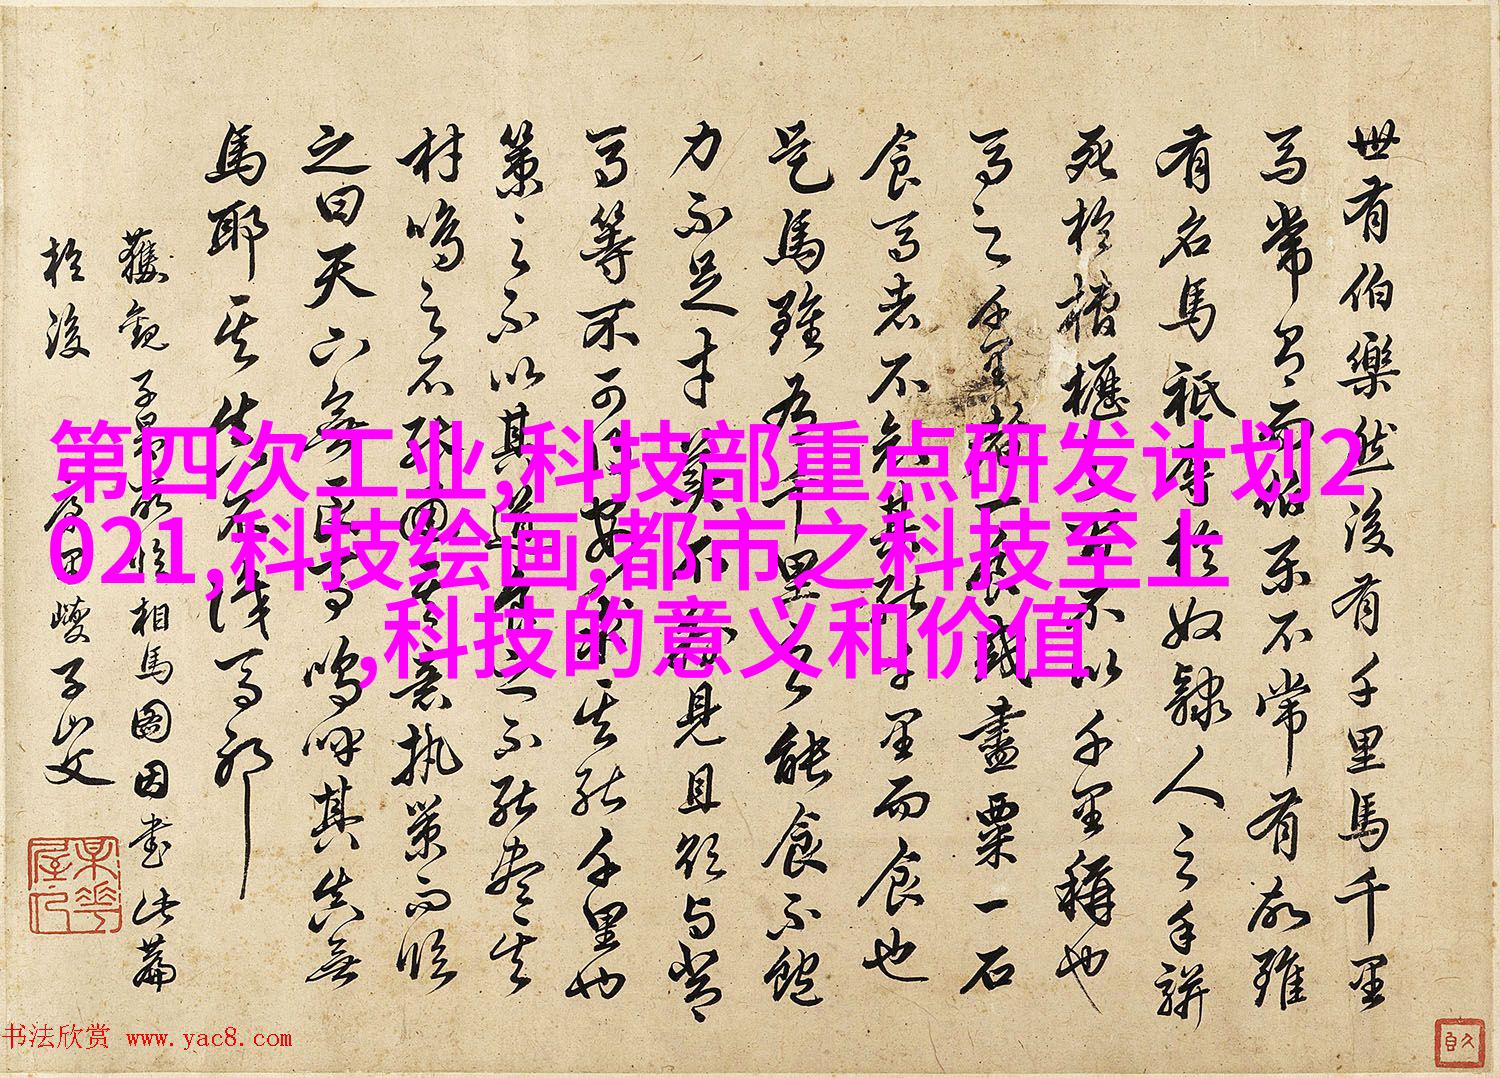 世有伯樂然後有千里馬千里
馬常有而伯樂不常有故雖
有名馬祇辱於奴隸人之手駢
死於槽櫪之間不以千里稱也
馬之千里者一食或盡粟一石
食馬者不知其能千里而食也
是馬雖有千里之能食不飽
力不足才美不外見且欲與常
馬等不可得安求其能千里也
策之不以其道食之不能盡其
材鳴之不能通其意執策而臨
之曰天下無馬嗚呼其真無
馬耶其真不識馬耶
獲觀子昂所臨相馬圖因書此篇
於後
子山
第四次工业,科技部重点研发计划2
021,科技绘画,都市之科技至上
,科技的意义和价值
书法欣赏 www.yac8.com